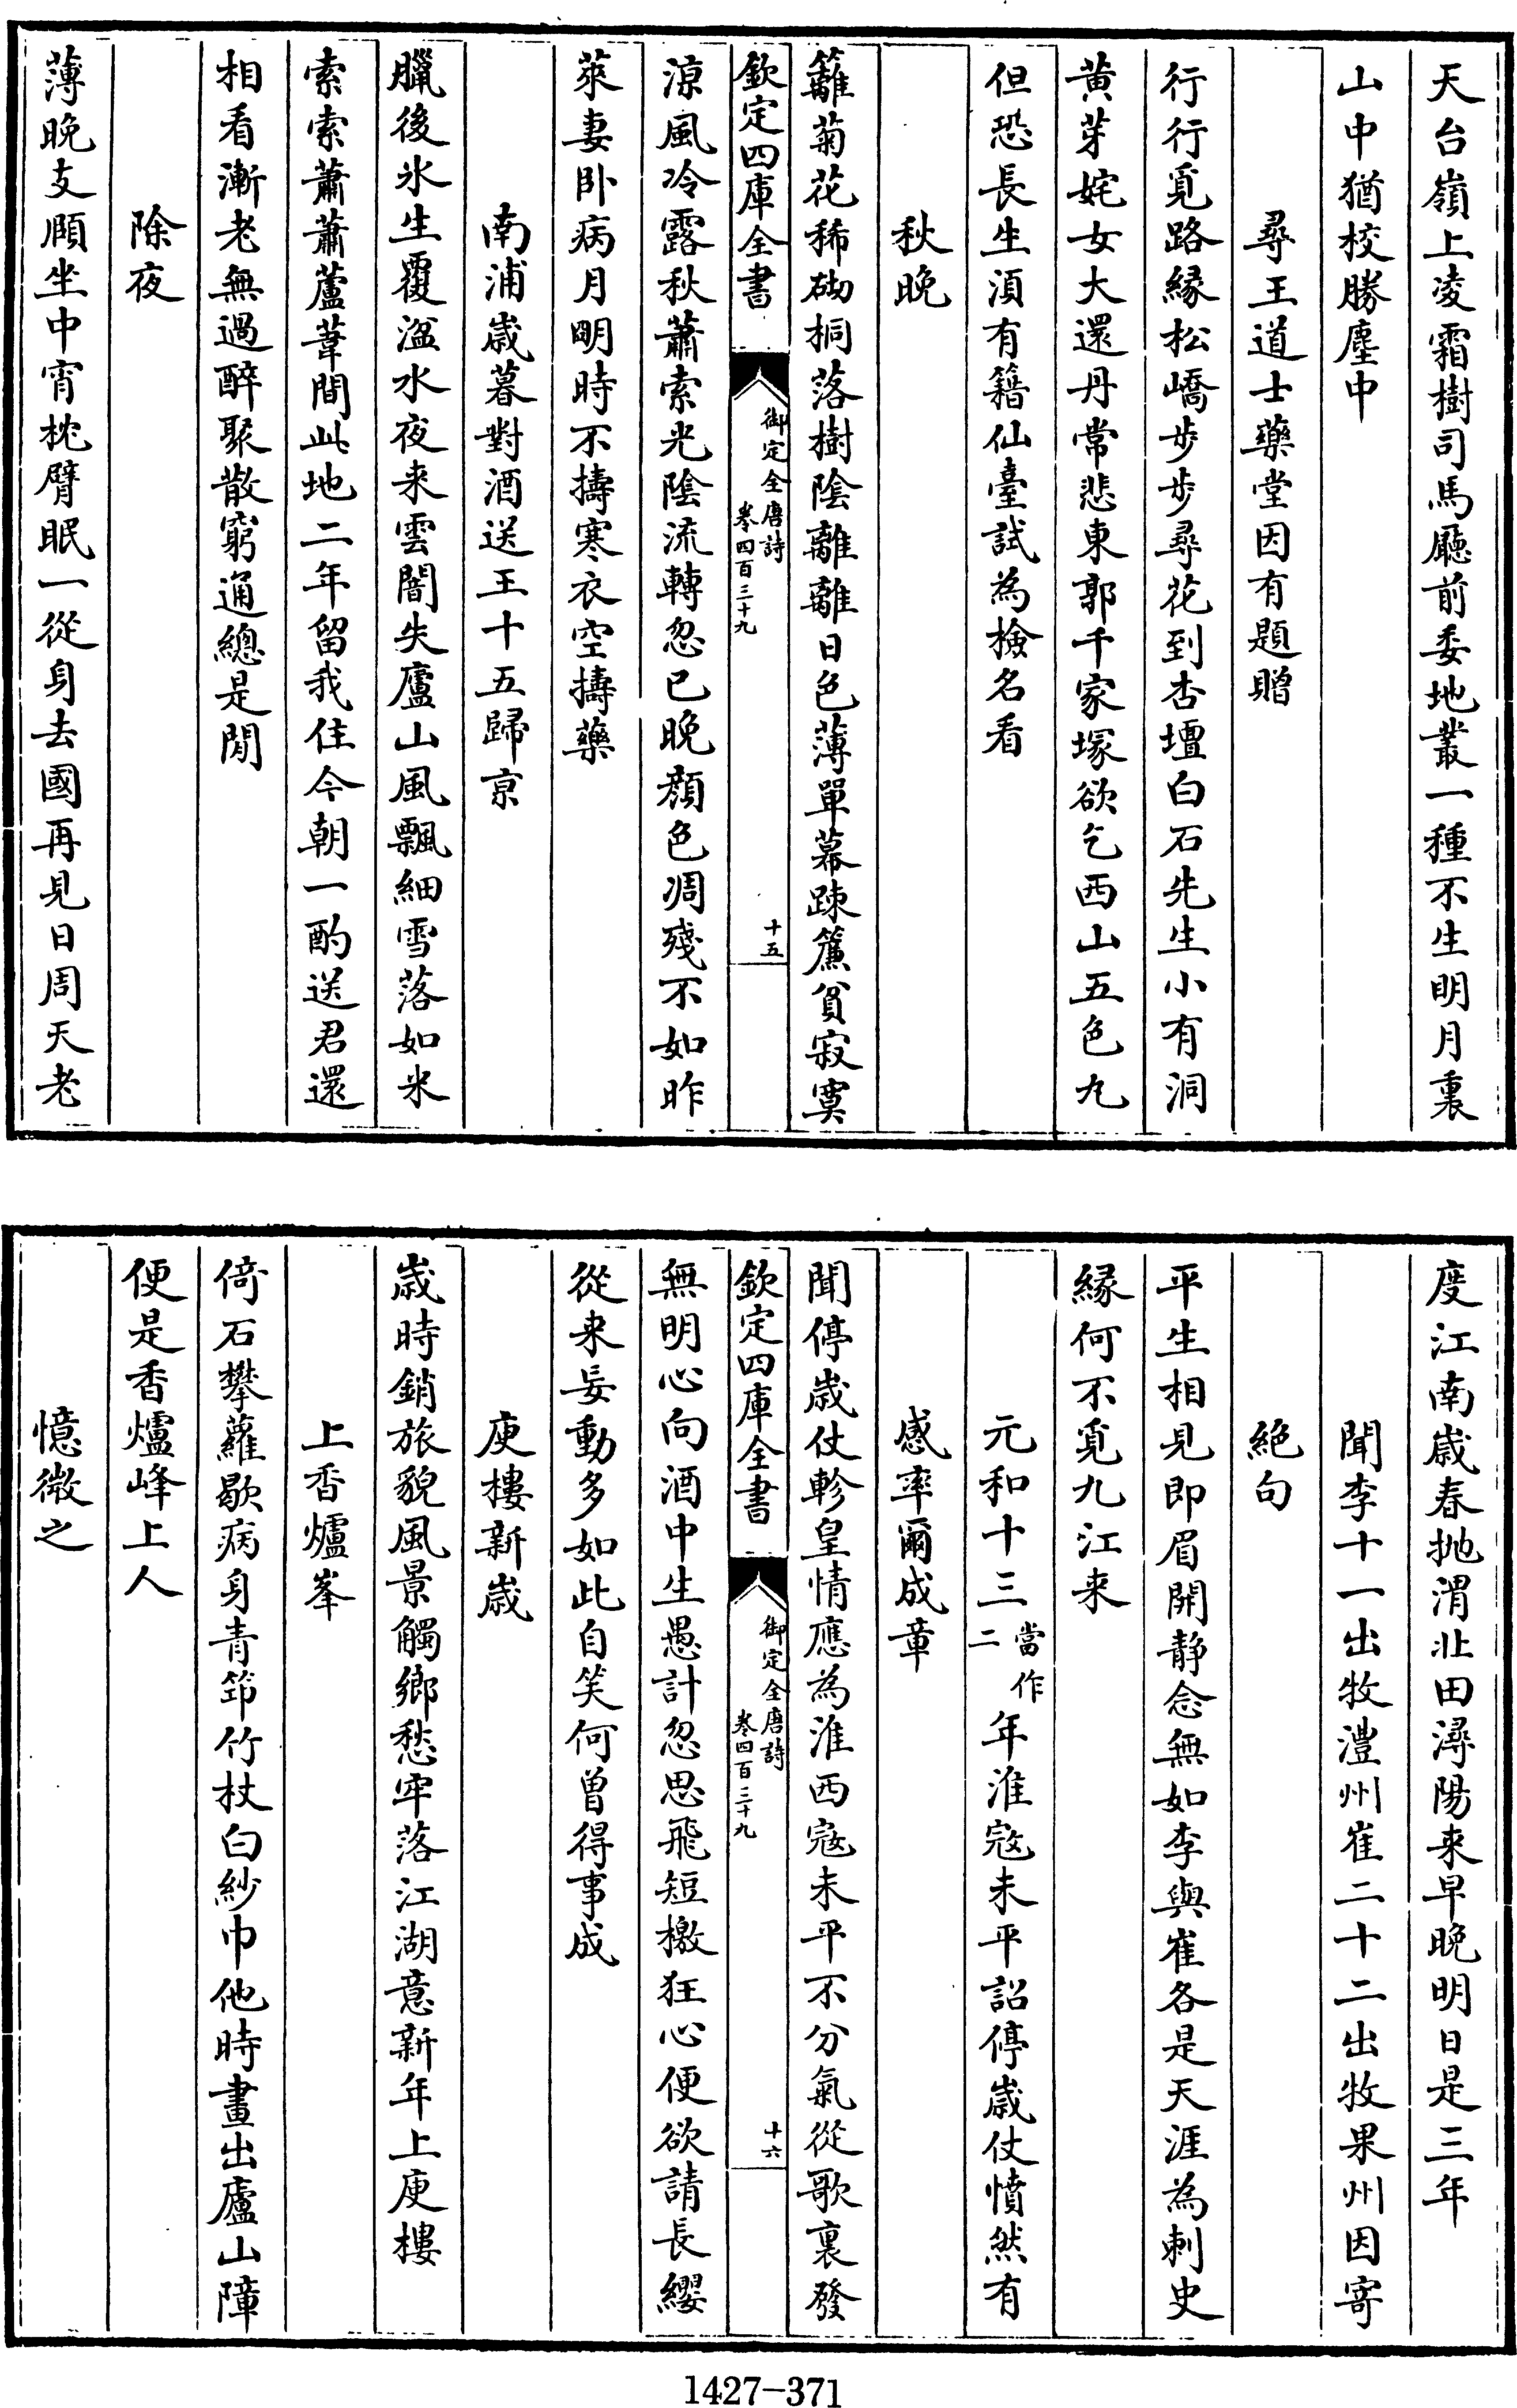 天台嶺上凌霜樹司馬廳前委地叢一種不生明月裏
山中猶校勝塵中
尋王道士藥堂因有題贈
行行覓路縁松嶠步步尋花到杏壇白石先生小有洞
黄芽姹女大還丹常悲東郭千家塚欲乞西山五色丸
但恐長生湏有籍仙臺試為檢名看
秋晚
籬菊花稀砌桐落樹陰離離日色薄單幕踈簾貧寂寞
欽定四庫全書
御定全唐詩
卷四百三十九
十五
涼風冷露秋蕭索光陰流轉忽已晚顔色凋殘不如昨
萊妻卧病月明時不擣寒衣空擣藥
南浦嵗暮對酒送王十五歸京
臘後氷生覆湓水夜来雲闇失廬山風飄細雪落如米
索索蕭蕭蘆葦間此地二年留我住今朝一酌送君還
相看漸老無過醉聚散窮通總是閒
除夜
薄晚支頤坐中宵枕臂眠一從身去國再見日周天老
度江南嵗春抛渭北田潯陽来早晚明日是三年
聞李十一出牧澧州崔二十二出牧果州因寄
絶句
平生相見即眉開静念無如李與崔各是天涯為刺史
縁何不覓九江来
元和十三當作二年淮寇未平詔停嵗仗憤然有
感率爾成章
聞停嵗仗軫皇情應為淮西寇未平不分氣從歌裏發
欽定四庫全書
御定全唐詩
卷四百三十九
十六
無明心向酒中生愚計忽思飛短檄狂心便欲請長纓
從来妄動多如此自笑何曾得事成
庾樓新嵗
嵗時銷旅貌風景觸鄉愁牢落江湖意新年上庾樓
上香爐峯
倚石攀蘿歇病身青筇竹杖白紗巾他時畫出廬山障
便是香爐峰上人
憶微之
1427-371